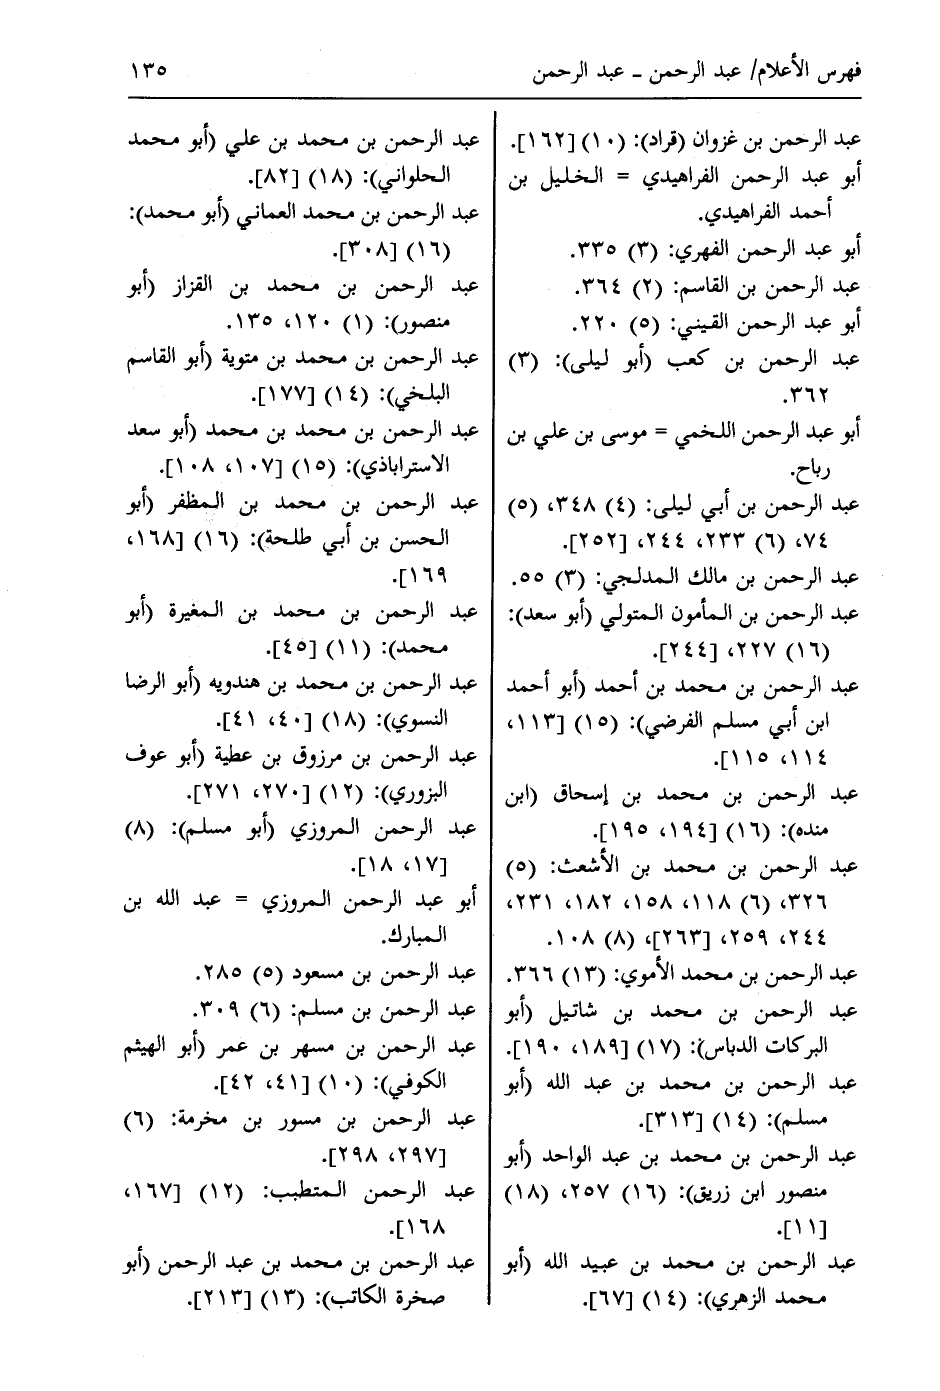 فهرس الأعلام/ عبد الرحمن ـ عبد الرحمن
١٣٥
عبد الرحمن بن غزوان (قراد): (١٠) [١٦٢].
أبو عبد الرحمن الفراهيدي = الخليل بن
أحمد الفراهيدي.
أبو عبد الرحمن الفهري: (٣) ٣٣٥.
عبد الرحمن بن القاسم: (٢) ٣٦٤.
أبو عبد الرحمن القيني: (٥) ٢٢٠.
عبد الرحمن بن كعب (أبو ليلى): (٣)
٣٦٢.
أبو عبد الرحمن اللخمي = موسى بن علي بن
رباح.
عبد الرحمن بن أبي ليلى: (٤) ٣٤٨، (٥)
٧٤، (٦) ٢٣٣، ٢٤٤، [٢٥٢].
عبد الرحمن بن مالك المدلجي: (٣) ٥٥.
عبد الرحمن بن المأمون المتولي (أبو سعد):
(١٦) ٢٢٧، [٢٤٤].
عبد الرحمن بن محمد بن أحمد (أبو أحمد
ابن أبي مسلم الفرضي): (١٥) [١١٣،
١١٤، ١١٥].
عبد الرحمن بن محمد بن إسحاق (ابن
منده): (١٦) [١٩٤، ١٩٥].
عبد الرحمن بن محمد بن الأشعث: (٥)
٣٢٦، (٦) ١١٨، ١٥٨، ١٨٢، ٢٣١،
٢٤٤، ٢٥٩، [٢٦٣]، (٨) ١٠٨.
عبد الرحمن بن محمد الأموي: (١٣) ٣٦٦.
عبد الرحمن بن محمد بن شاتيل (أبو
البركات الدباس): (١٧) [١٨٩، ١٩٠].
عبد الرحمن بن محمد بن عبد الله (أبو
مسلم): (١٤) [٣١٣].
عبد الرحمن بن محمد بن عبد الواحد (أبو
منصور ابن زريق): (١٦) ٢٥٧، (١٨)
[١١].
عبد الرحمن بن محمد بن عبيد الله (أبو
محمد الزهري): (١٤) [٦٧].
عبد الرحمن بن محمد بن علي (أبو محمد
الحلواني): (١٨) [٨٢].
عبد الرحمن بن محمد العماني (أبو محمد):
(١٦) [٣٠٨].
عبد الرحمن بن محمد بن القزاز (أبو
منصور): (١) ١٢٠، ١٣٥.
عبد الرحمن بن محمد بن متوية (أبو القاسم
البلخي): (١٤) [١٧٧].
عبد الرحمن بن محمد بن محمد (أبو سعد
الاستراباذي): (١٥) [١٠٧، ١٠٨].
عبد الرحمن بن محمد بن المظفر (أبو
الحسن بن أبي طلحة): (١٦) [١٦٨،
١٦٩].
عبد الرحمن بن محمد بن المغيرة (أبو
محمد): (١١) [٤٥].
عبد الرحمن بن محمد بن هندويه (أبو الرضا
النسوي): (١٨) [٤٠، ٤١].
عبد الرحمن بن مرزوق بن عطية (أبو عوف
البزوري): (١٢) [٢٧٠، ٢٧١].
عبد الرحمن المروزي (أبو مسلم): (٨)
[١٧، ١٨].
أبو عبد الرحمن المروزي = عبد الله بن
المبارك.
عبد الرحمن بن مسعود (٥) ٢٨٥.
عبد الرحمن بن مسلم: (٦) ٣٠٩.
عبد الرحمن بن مسهر بن عمر (أبو الهيثم
الكوفي): (١٠) [٤١، ٤٢].
عبد الرحمن بن مسور بن مخرمة: (٦)
[٢٩٧، ٢٩٨].
عبد الرحمن المتطبب: (١٢) [١٦٧،
١٦٨].
عبد الرحمن بن محمد بن عبد الرحمن (أبو
صخرة الكاتب): (١٣) [٢١٣].